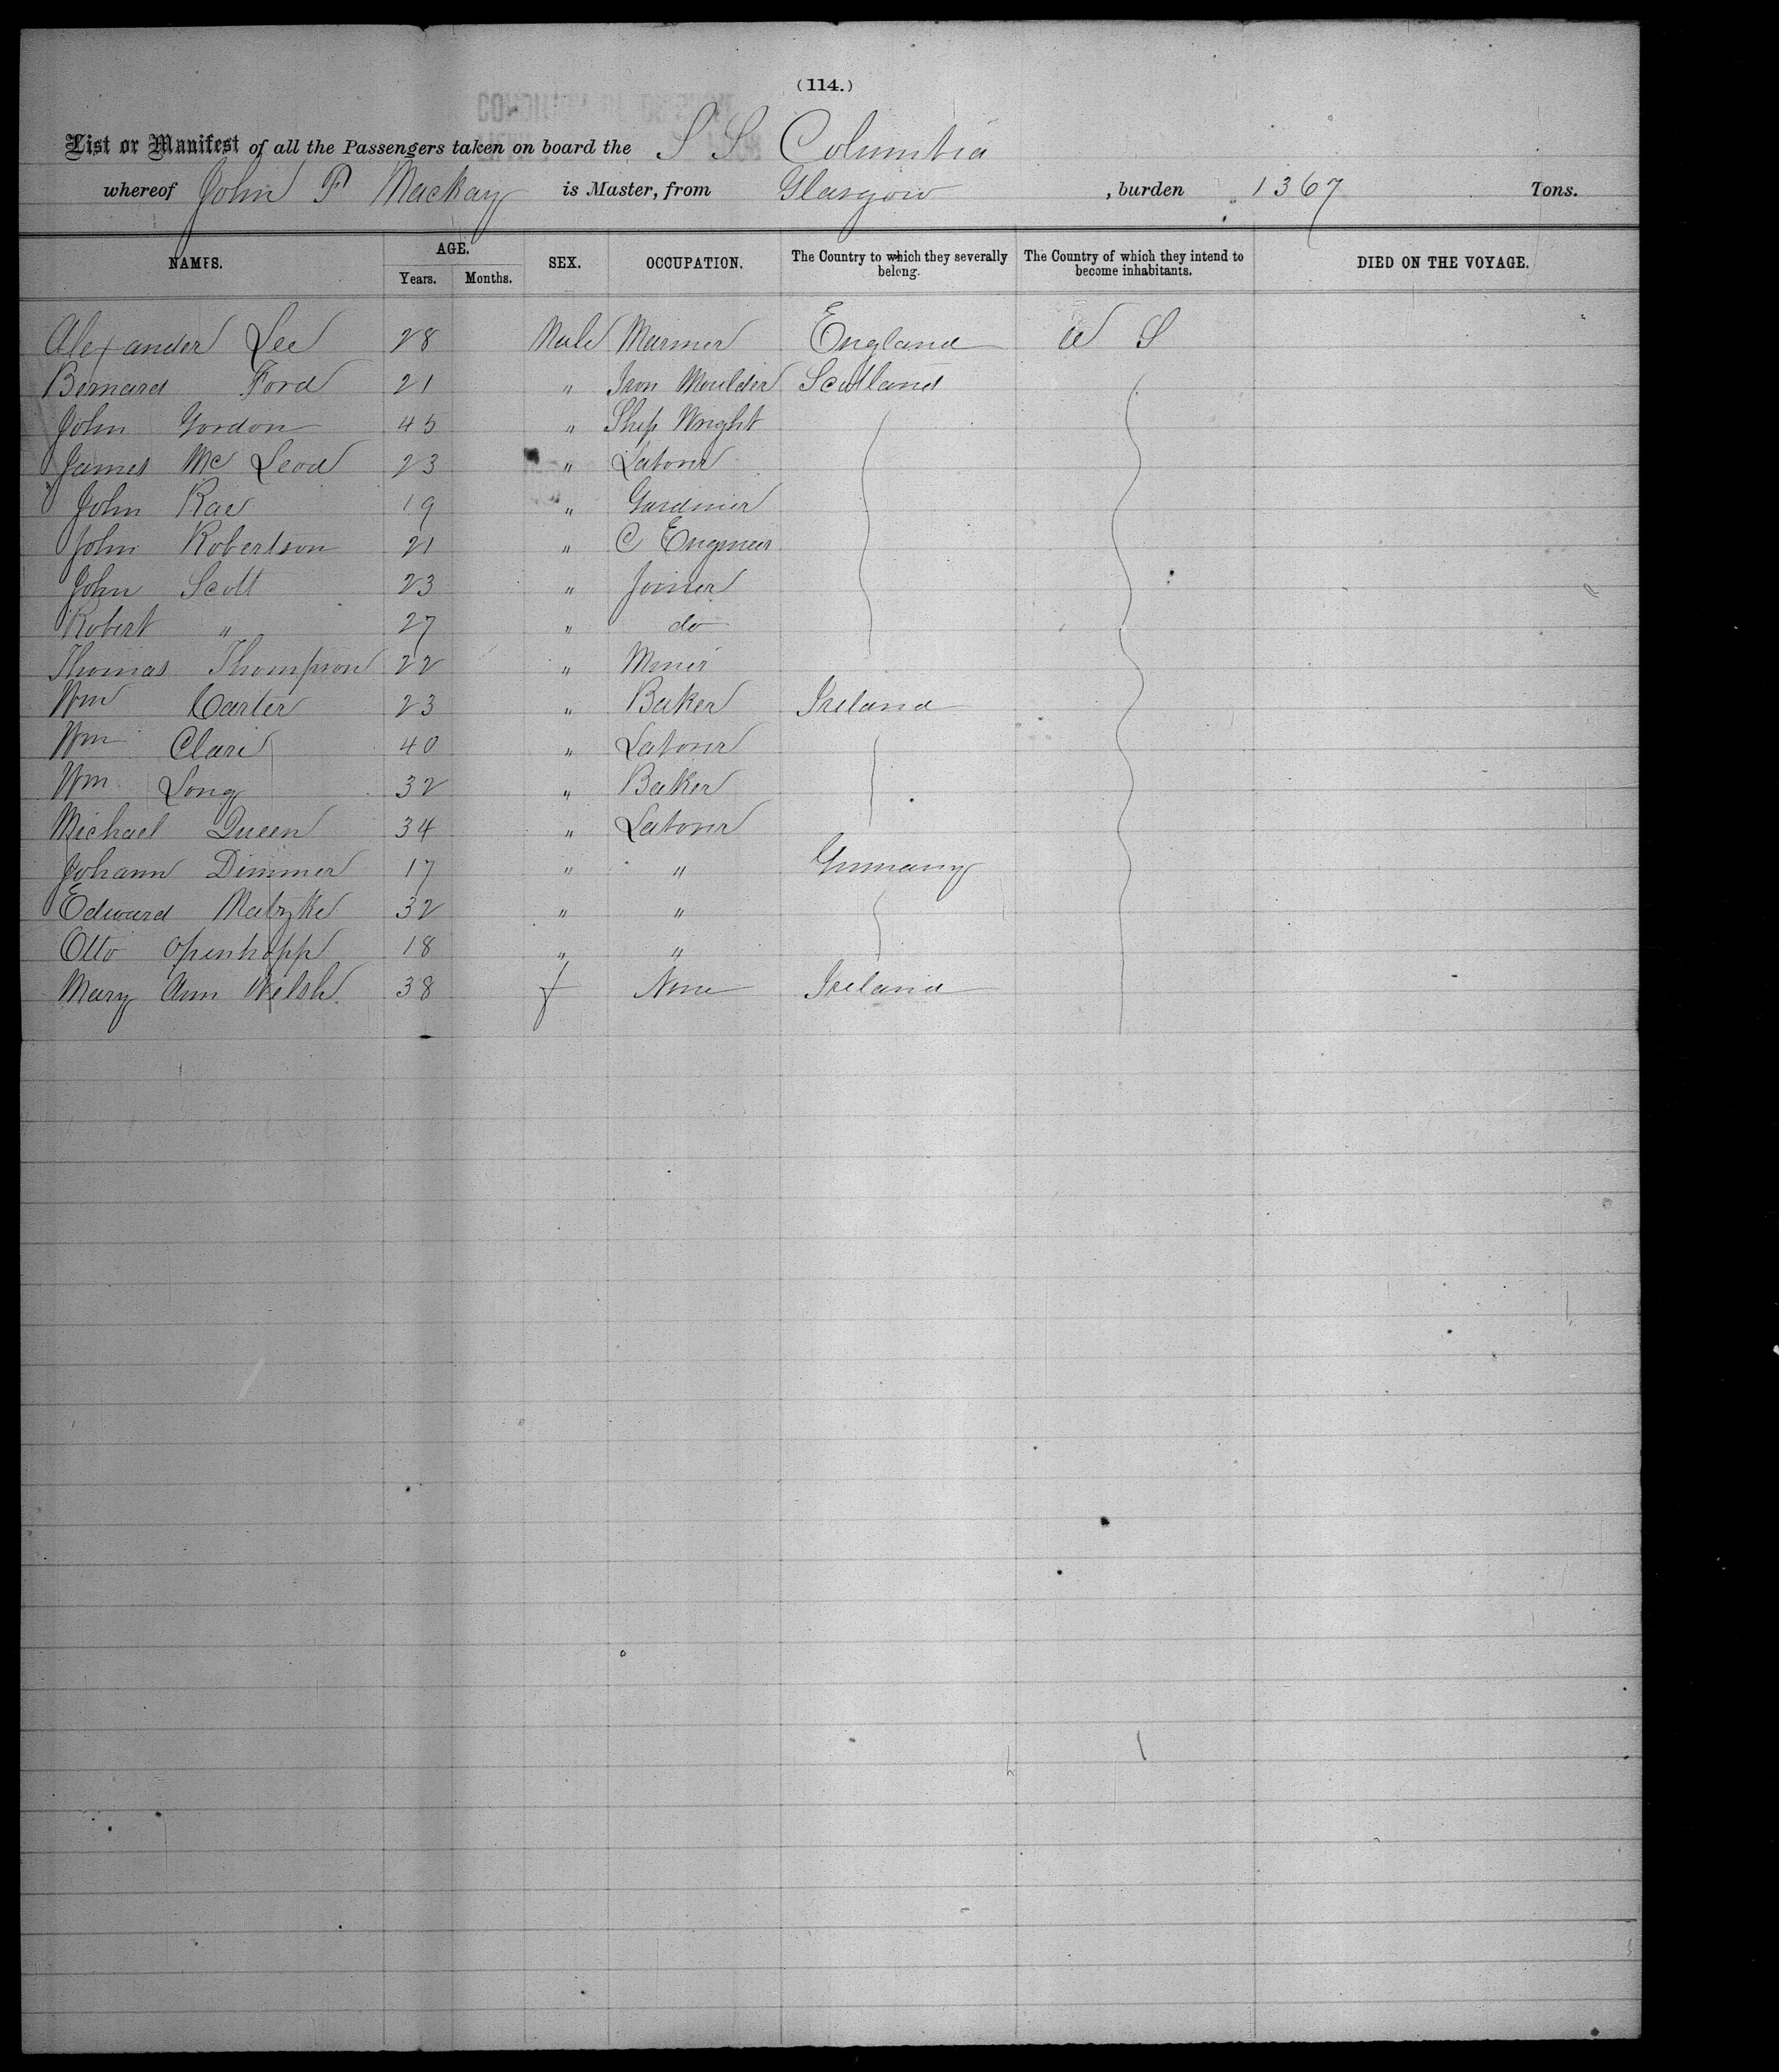 (114.)
List or Manifest of all the Passengers taken on board the S S Columbia
whereof John P Mackay is Master, from Glasgow, burden 1367 Tons.
NAMES. AGE. Years. Months. SEX. OCCUPATION. The Country to which they severally belong. The Country of which they intend to become inhabitants. DIED ON THE VOYAGE.
Alexander Lee 28 Male Mariner England U S
Bernard Ford 21 " Iron Moulder Scotland
John Gordon 45 " Ship Wright
James Mc Leod 23 " Laborer
John Rae 19 " Gardiner
John Robertson 21 " C Engineer
John Scott 23 " Joiner
Robert " 27 " do
Thomas Thompson 22 " Miner
Wm Carter 23 " Baker Ireland
Wm Clare 40 " Laborer
Wm Long 32 " Baker
Michael Queen 34 " Laborer
Johann Dimmer 17 " " Germany
Edward Matzke 32 " "
Otto Openhopp 18 " "
Mary Ann Welsh. 38 f None Ireland